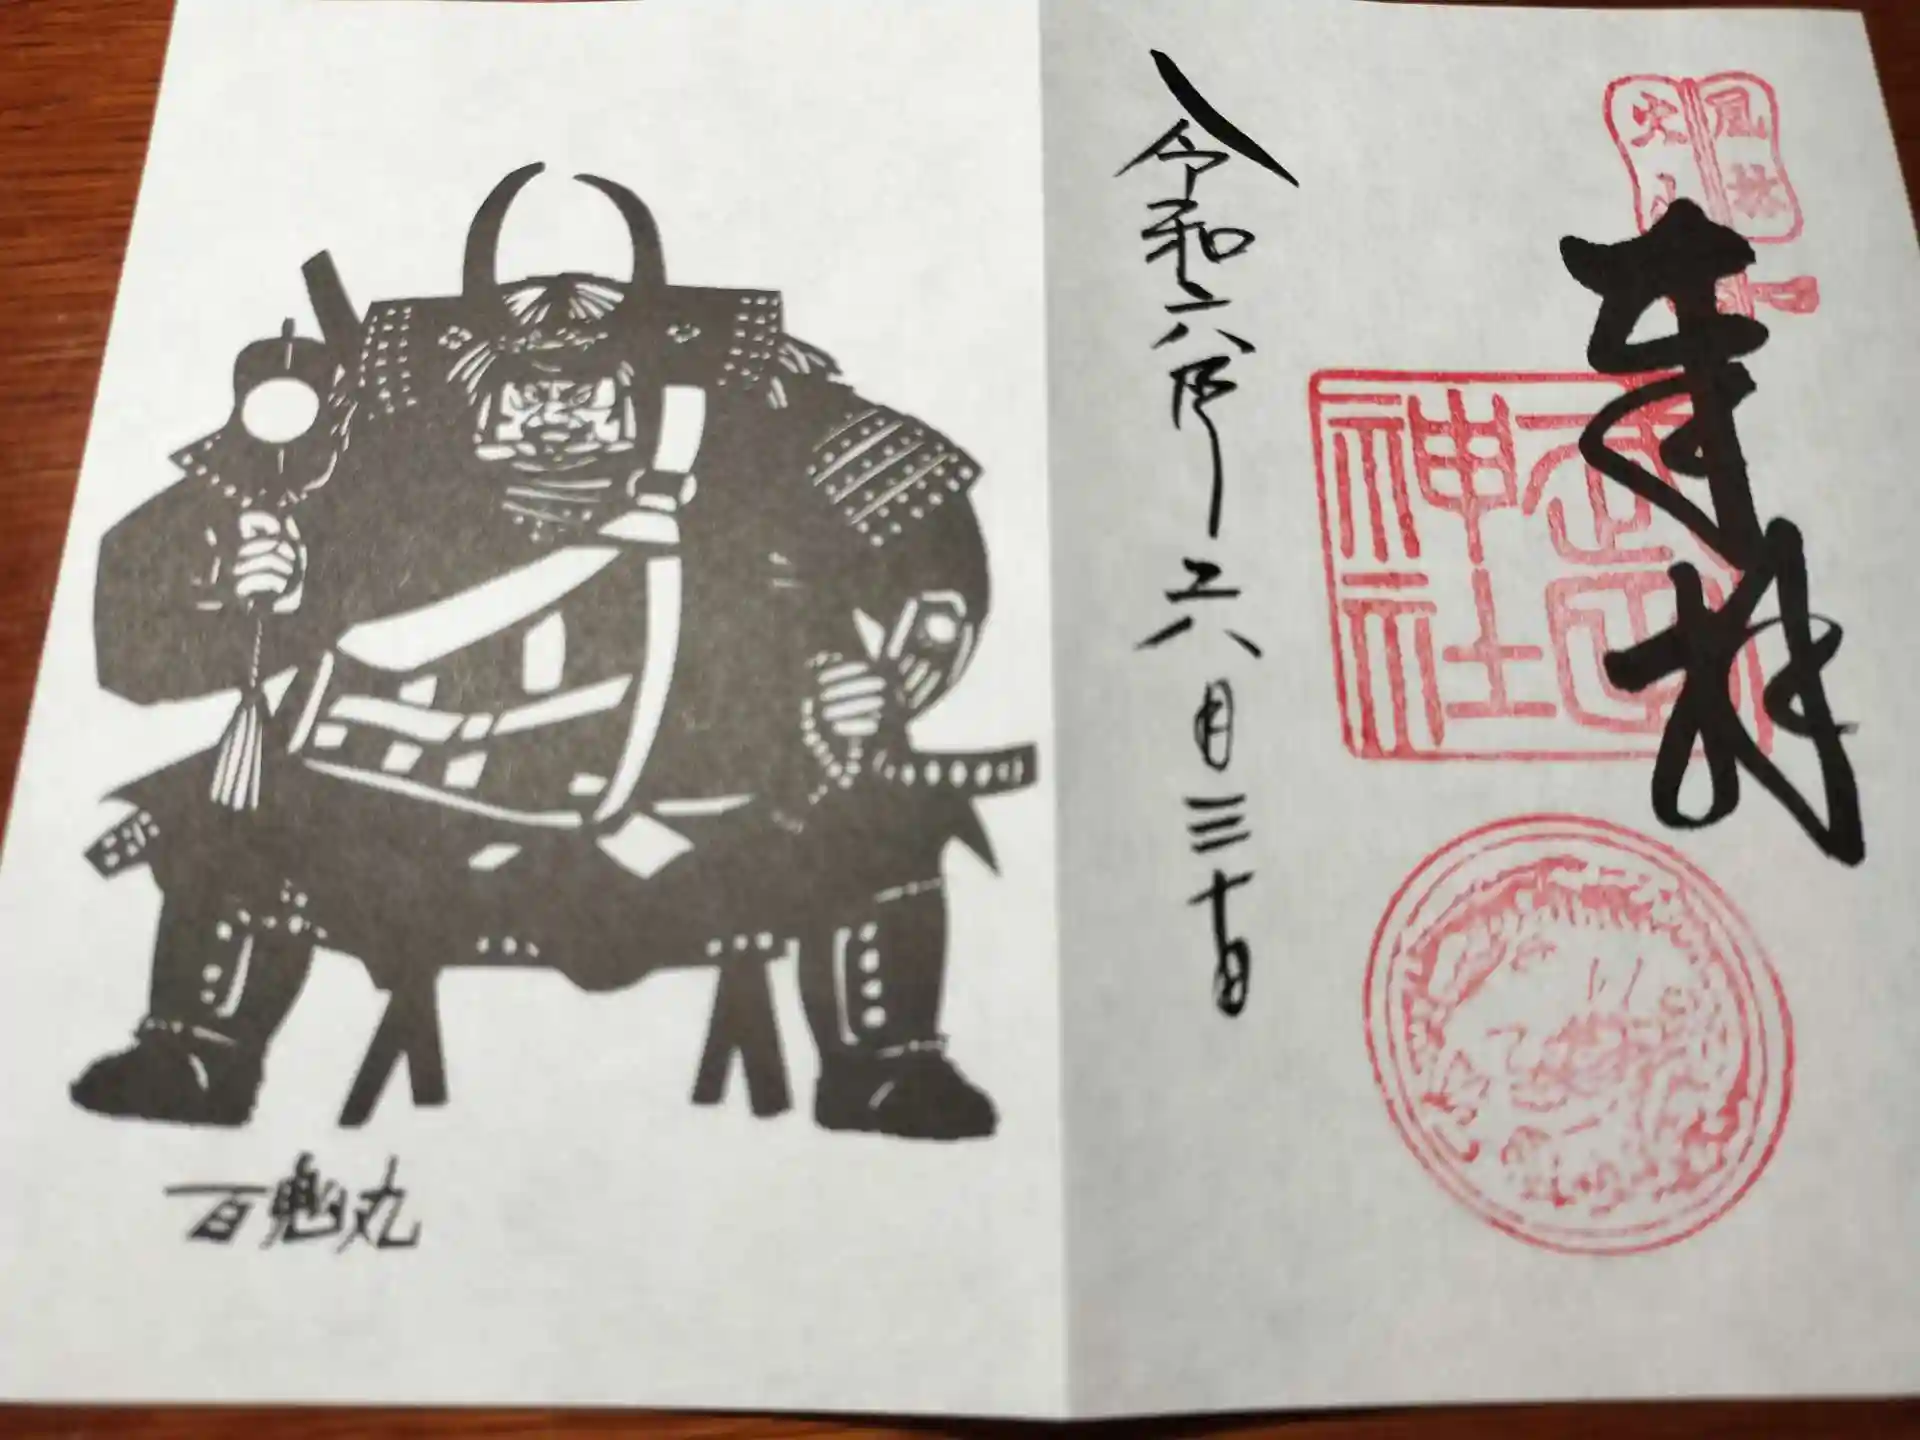 風林
火山
奉拝
武田
神社
令和六年
六月三十日
百鬼丸